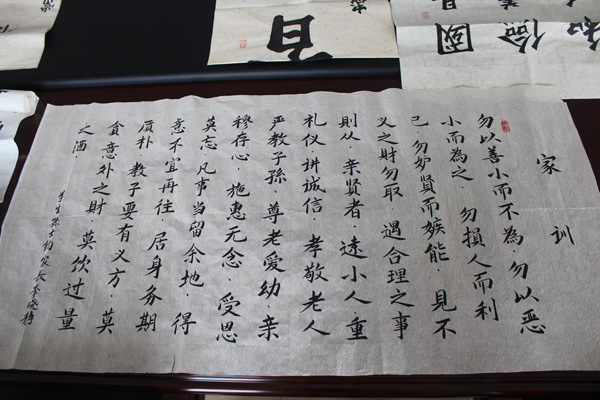 家训
勿以善小而不為·勿以恶
小而為之·勿損人而利
己·勿妒賢而嫉能·見不
义之財勿取·遇合理之事
則从·亲賢者·遠小人重
礼仪·讲诚信·孝敬老人
严教子孫·尊老爱幼·亲
穆存心·施惠无念·受恩
莫忘·凡事当留余地·得
意不宜再往·居身务期
质朴·教子要有义方·莫
貪意外之財·莫饮过量
之酒·
儉
國